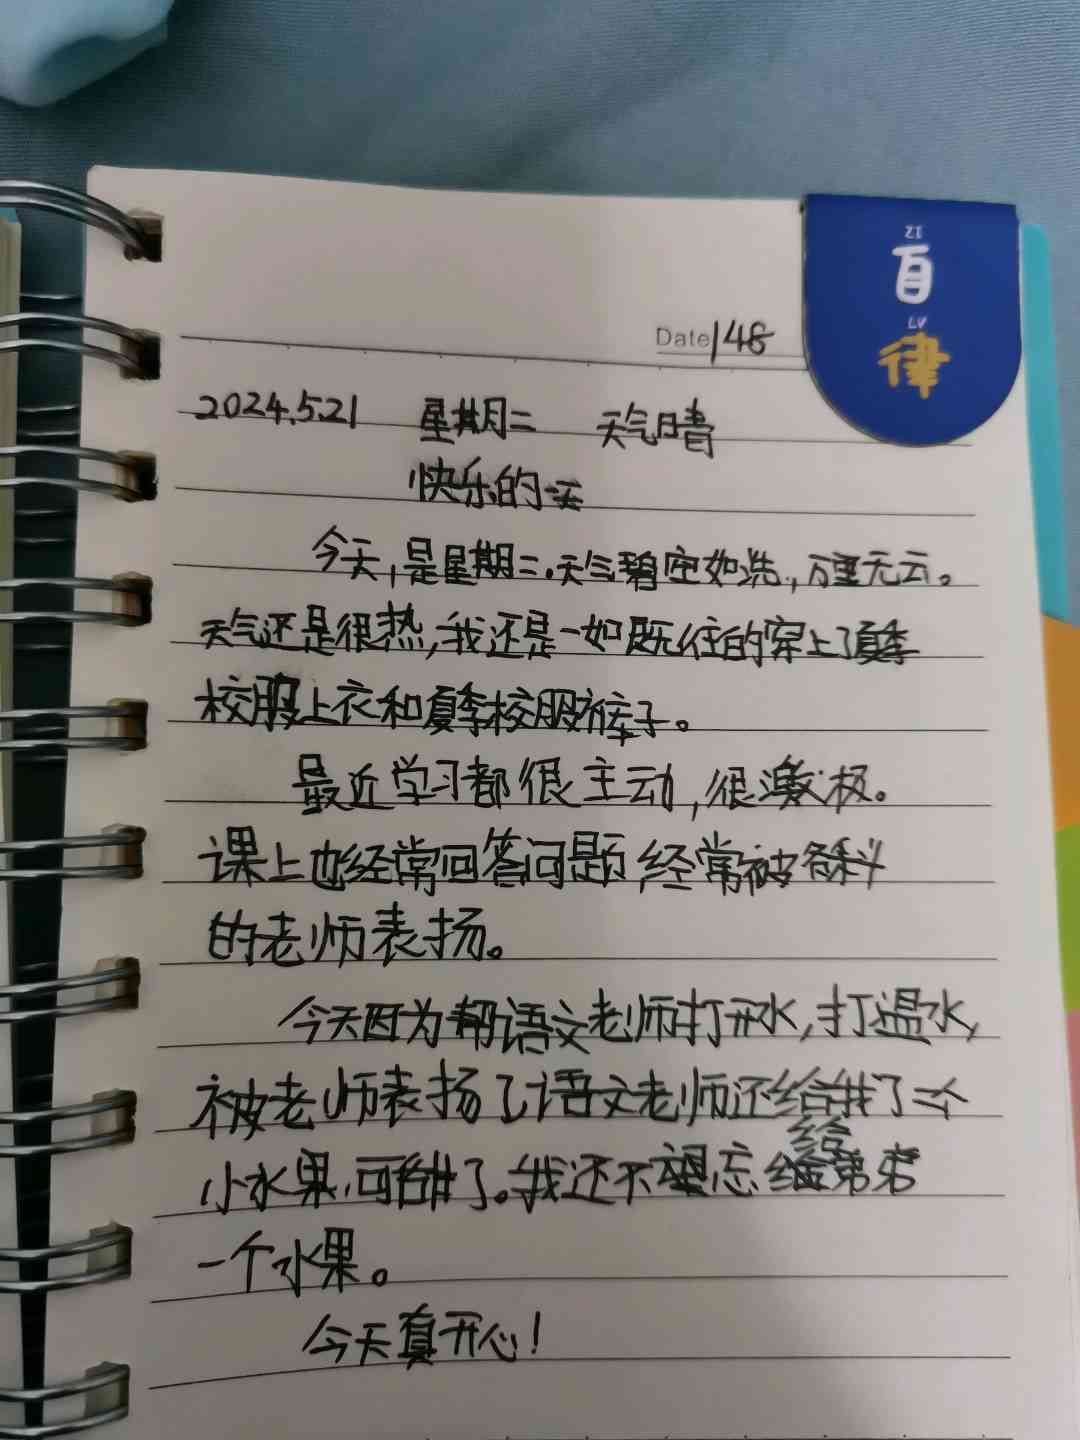 Date 148
自律
ZI
LV
2024.5.21 星期二 天气晴
快乐的一天
今天,是星期二.天气碧空如洗,万里无云。
天气还是很热,我还是一如既往的穿上了夏季
校服上衣和夏季校服裤子。
最近学习都很主动,很激极。
课上也经常回答问题,经常被各科
的老师表扬。
今天因为帮语文老师打开水,打温水,
被老师表扬了语文老师还给我了一个
小水果,可甜了。我还不忘给弟弟
一个水果。
今天真开心!